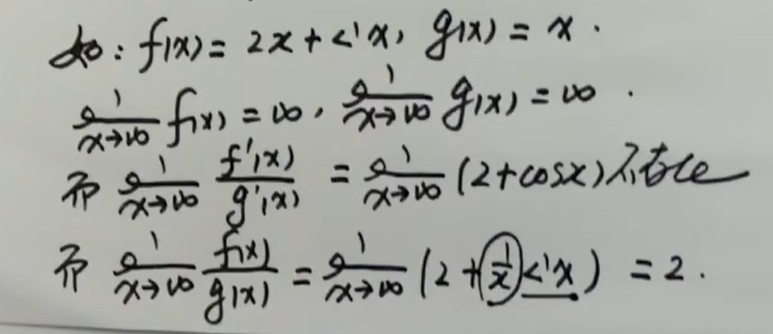 如：f(x) = 2x + sinx, g(x) = x.
lim x→∞ f(x) = ∞, lim x→∞ g(x) = ∞.
而 lim x→∞ f'(x)/g'(x) = lim x→∞ (2+cosx) 不存在
而 lim x→∞ f(x)/g(x) = lim x→∞ (2 + 1/x sinx) = 2.